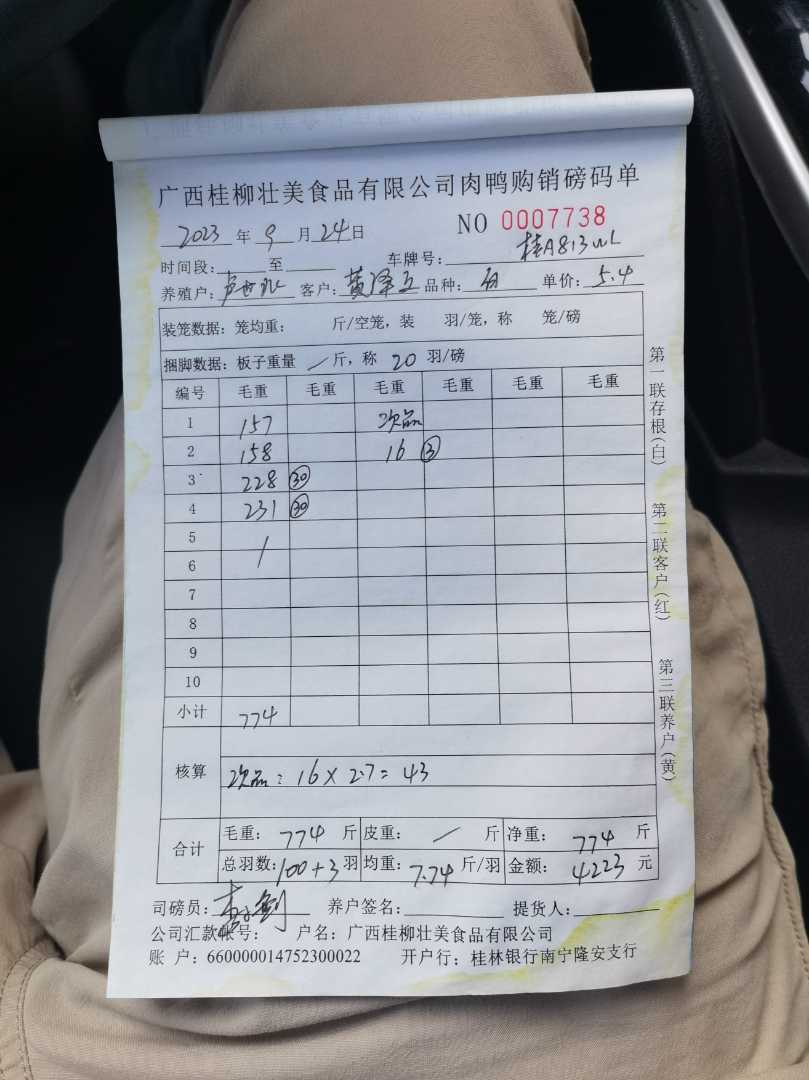 广西桂柳壮美食品有限公司肉鸭购销磅码单
2023 年 9 月 24 日 NO 0007738
时间段: 至 车牌号: 桂A813WL
养殖户: 客户: 黄泽立 品种: 单价: 5.4
装笼数据: 笼均重: 斤/空笼, 装 羽/笼, 称 笼/磅
捆脚数据: 板子重量 / 斤, 称 20 羽/磅
编号 毛重 毛重 毛重 毛重 毛重 毛重
1 157 次品
2 158 16 ③
3 228 ㉚
4 231 ㉚
5
6 /
7
8
9
10
小计 774
核算 次品: 16 × 2.7 = 43
合计 毛重: 774 斤 皮重: / 斤 净重: 774 斤
总羽数: 100+3 羽 均重: 7.74 斤/羽 金额: 4223 元
司磅员: 养户签名: 提货人:
公司汇款帐号: 户名: 广西桂柳壮美食品有限公司
账 户: 660000014752300022 开户行: 桂林银行南宁隆安支行
第一联存根(白)
第二联客户(红)
第三联养户(黄)